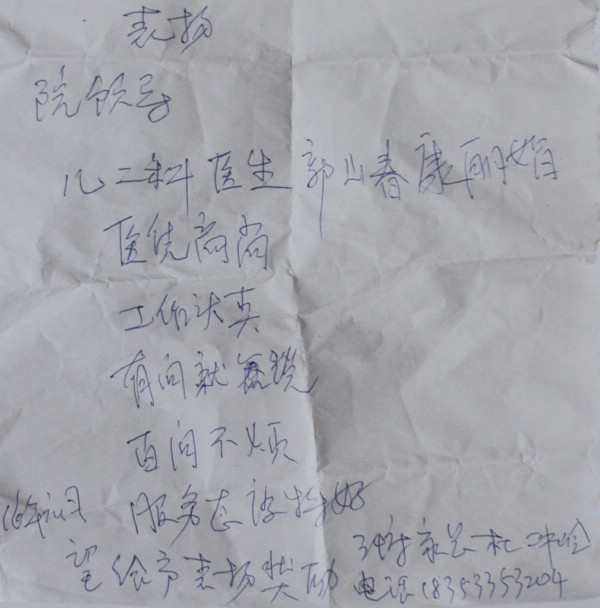 表扬
院领导
儿二科医生郭山春康丽娟
医德高尚
工作认真
有问就答
百问不烦
服务态度特好
望给予表扬奖励
电话18353353204